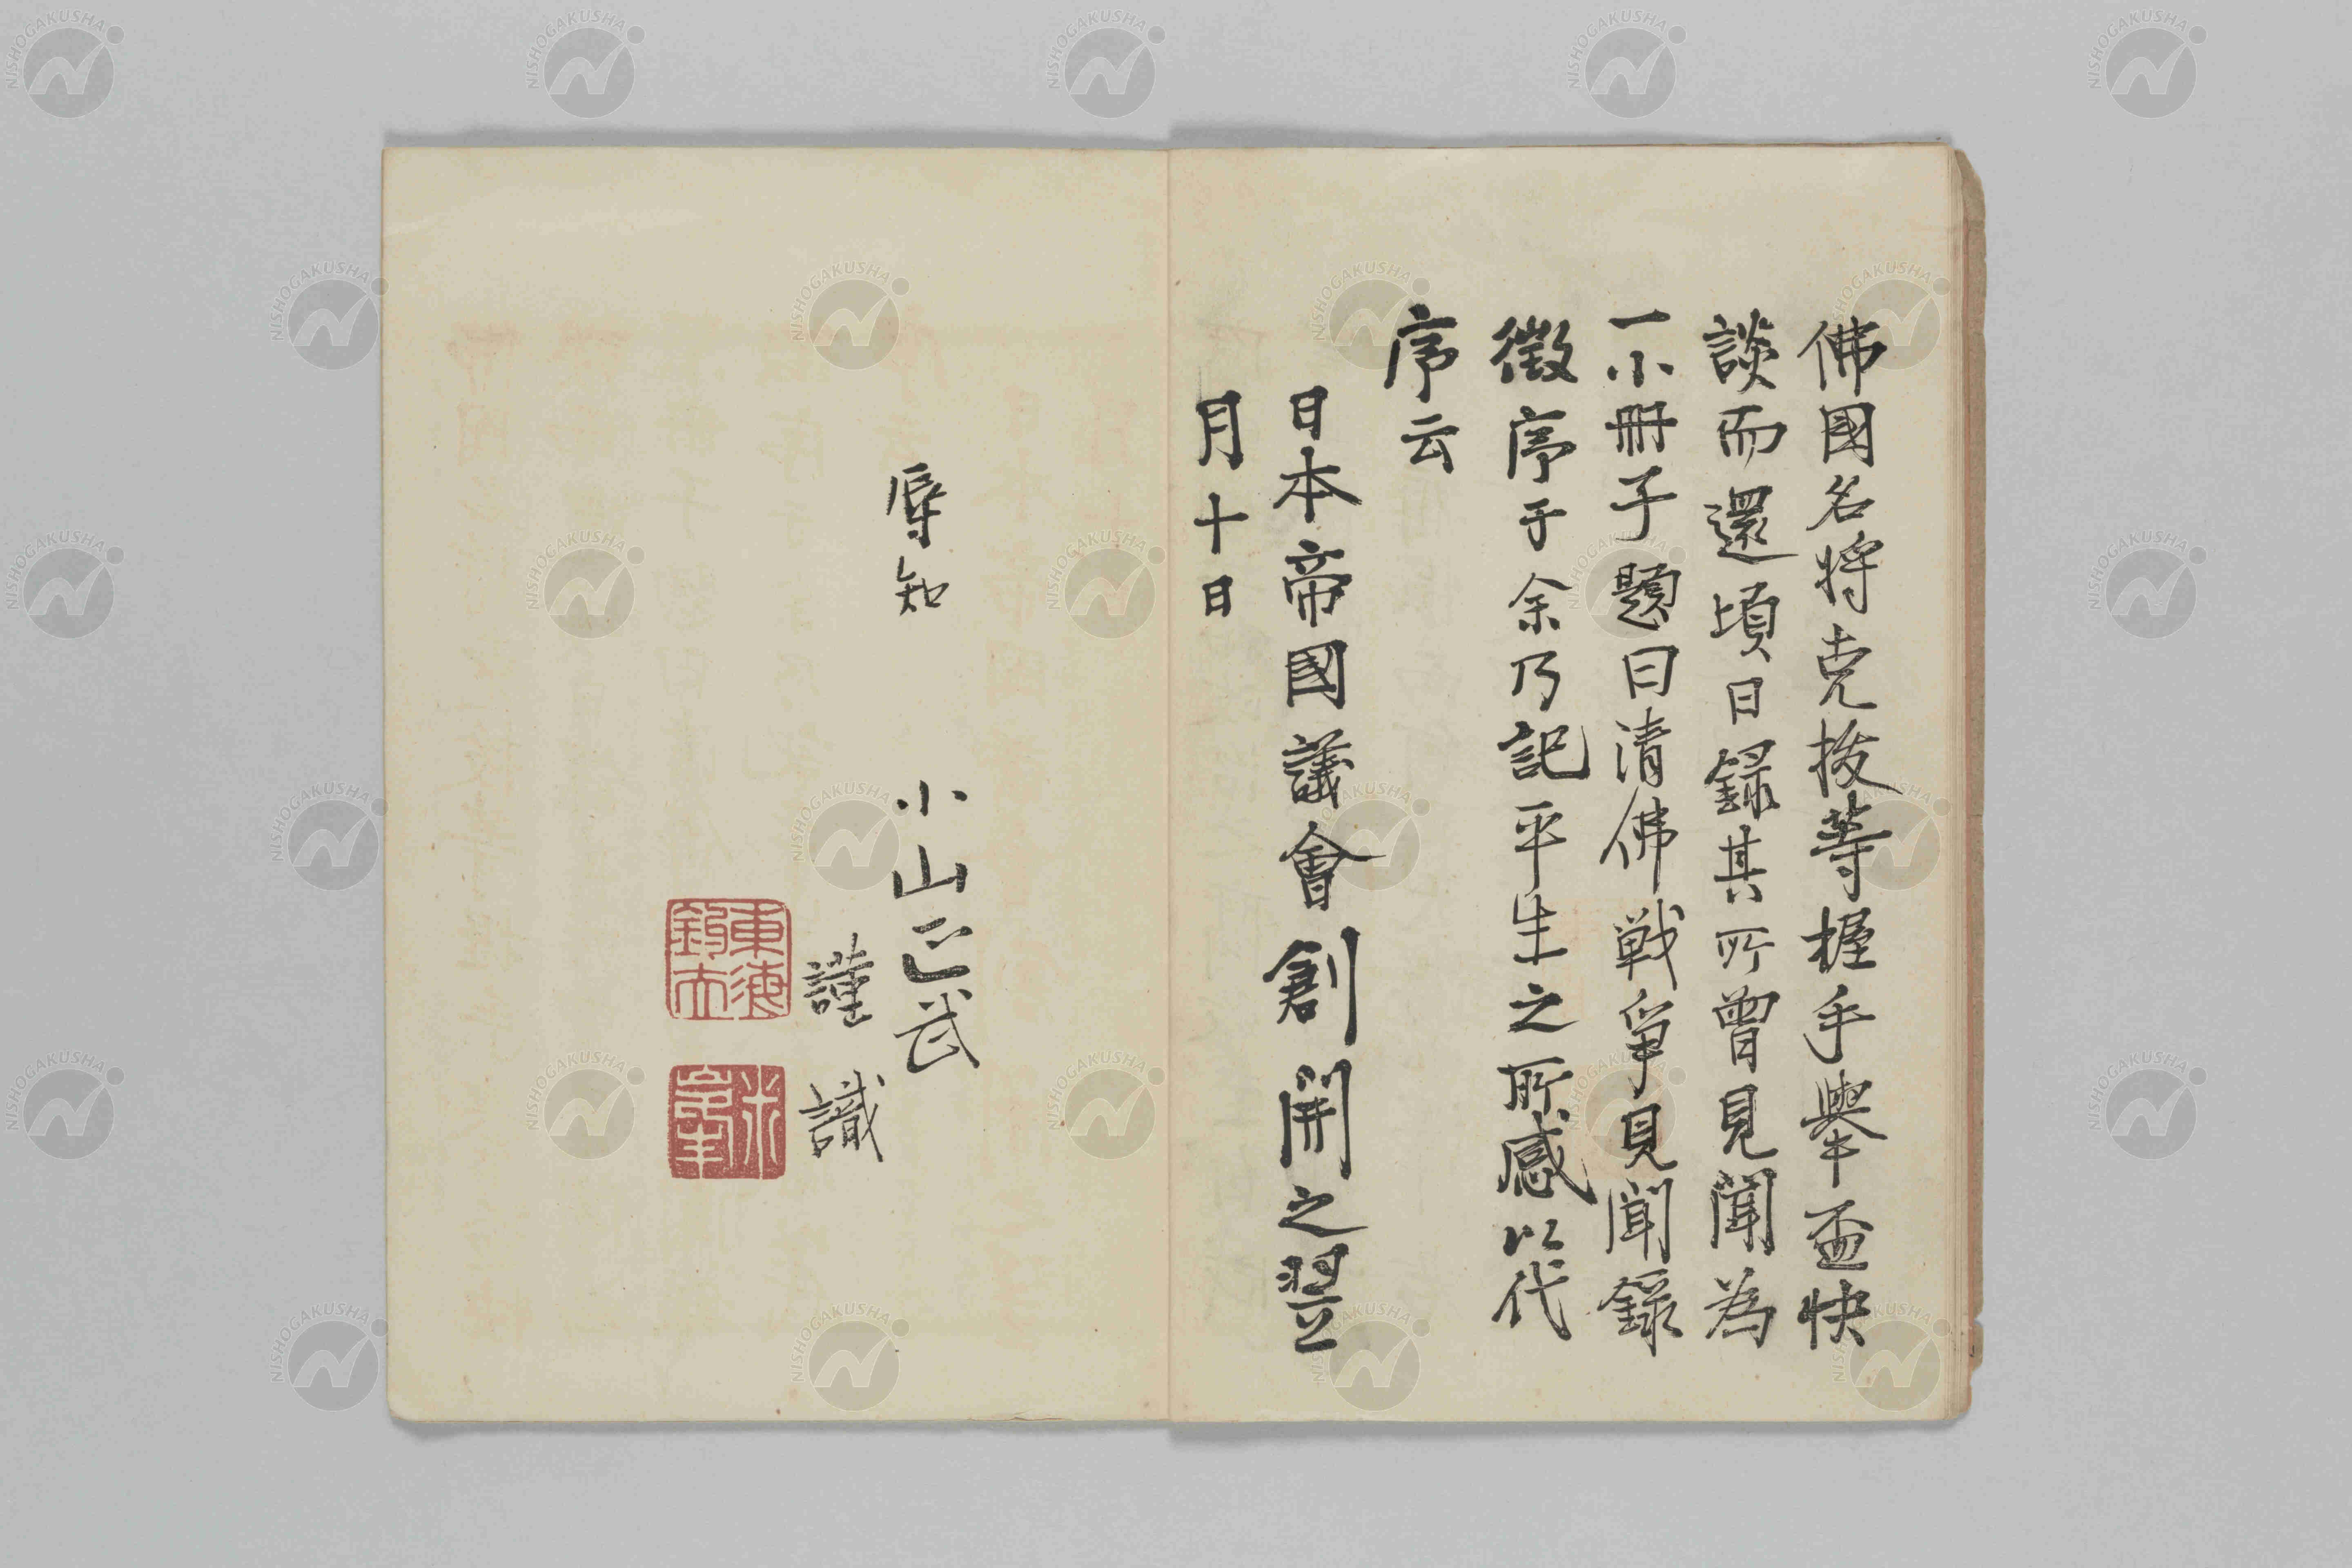 佛國名将克拔等握手舉盃快
談而還頃日録其所曽見聞為
一小冊子題曰清佛戦争見聞録
徴序于余乃記平生之所感以代
序云
日本帝國議會創開之翌
月十日
辱知 小山正武
謹識
東海
釣夫
NISHOGAKUSHA